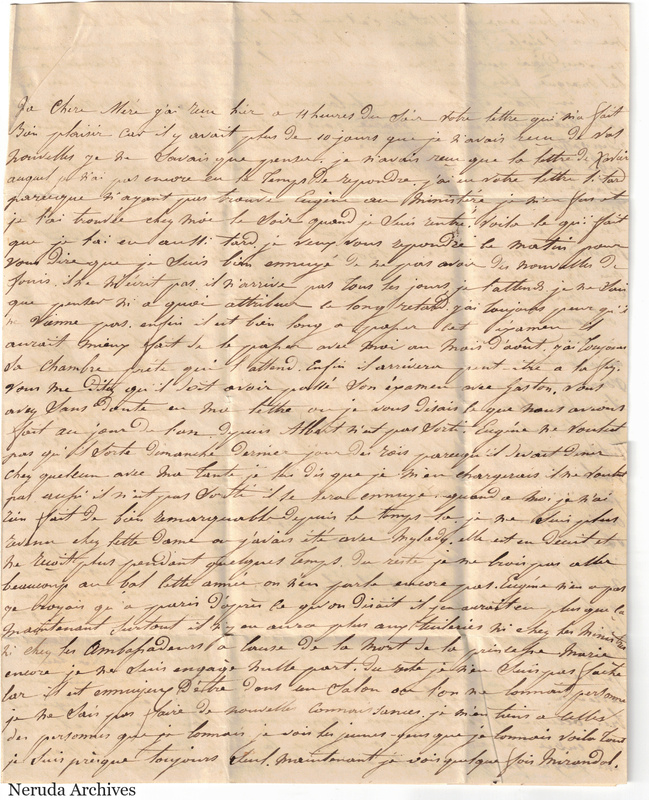 Ma Chere Mère j'ai reçu hier a 11 heures du Soir votre lettre qui m'a fait
Bien plaisir car il y avait plus de 10 jours que je n'avais recu de vos
nouvelles je ne Savais que penser. je n'avais recu que la lettre de Xavier
auquel je n'ai pas encore eu le Temps De repondre. j'ai eu votre lettre si tard
parceque n'ayant pas trouvé Eugène au Ministère je m'en fus et
je l'ai trouvée chez moi le Soir quand je Suis rentré. Voila ce qui fait
que je l'ai eu aussi tard. je veux vous repondre ce matin pour
vous dire que je Suis bien ennuyé de ne pas avoir des nouvelles de
il ne m'écrit pas il n'arrive pas tous les jours je l'attends je ne Sais
que penser ni a quoi attribuer ce long retard j'ai toujours peur qu'il
ne Vienne pas. enfin il est bien long a passer cet examen il
aurait mieux fait de le passer avec moi au mois d'août. j'ai toujours
Sa chambre prete qui l'attend. Enfin il arrivera peut etre a la fin.
Vous me dites qu'il doit avoir passé Son éxamen avec Gaston. vous
avez Sans doute eu ma lettre ou je vous disais ce que nous avions
fait au jour de l'an depuis Albert n'est pas Sorti Eugène ne voulut
pas qu'il Sorte dimanche dernier jour des rois parcequ'il devait diner
chez quelcun avec ma tante je lui dis que je m'en chargerais il ne voulut
pas aussi il n'est pas Sorti il se sera ennuyé. quand a moi je n'ai
rien fait de bien remarquable depuis ce temps la je ne Suis plus
revenu chez cette Dame ou j'avais ete avec Mylady. elle est en deuil et
ne recoit plus pendant quelques temps. du reste je ne crois pas aller
beaucoup au bal cette année on n'en parle encore pas. Eugène n'en a pas
je croyais qu'a paris d'après ce qu'on disait il y en aurait eu plus que ca
maintenant surtout il n'y en aura plus aux tuileries ni chez les Ministres
ni chez les Ambassadeurs a cause de la mort de la princesse Marie
encore je ne Suis engagé nulle part. du reste je n'en Suis pas faché
Car il est ennuyeux D'être dans un Salon ou l'on ne connait personne
je ne Sais pas faire de nouvelle connaissances. je m'en tiens a celles
des personnes que je connais je vois les jeunes gens que je connais voila tout
je Suis presque toujours Seul. maintenant je vois quelque fois Mirandol.
Neruda Archives